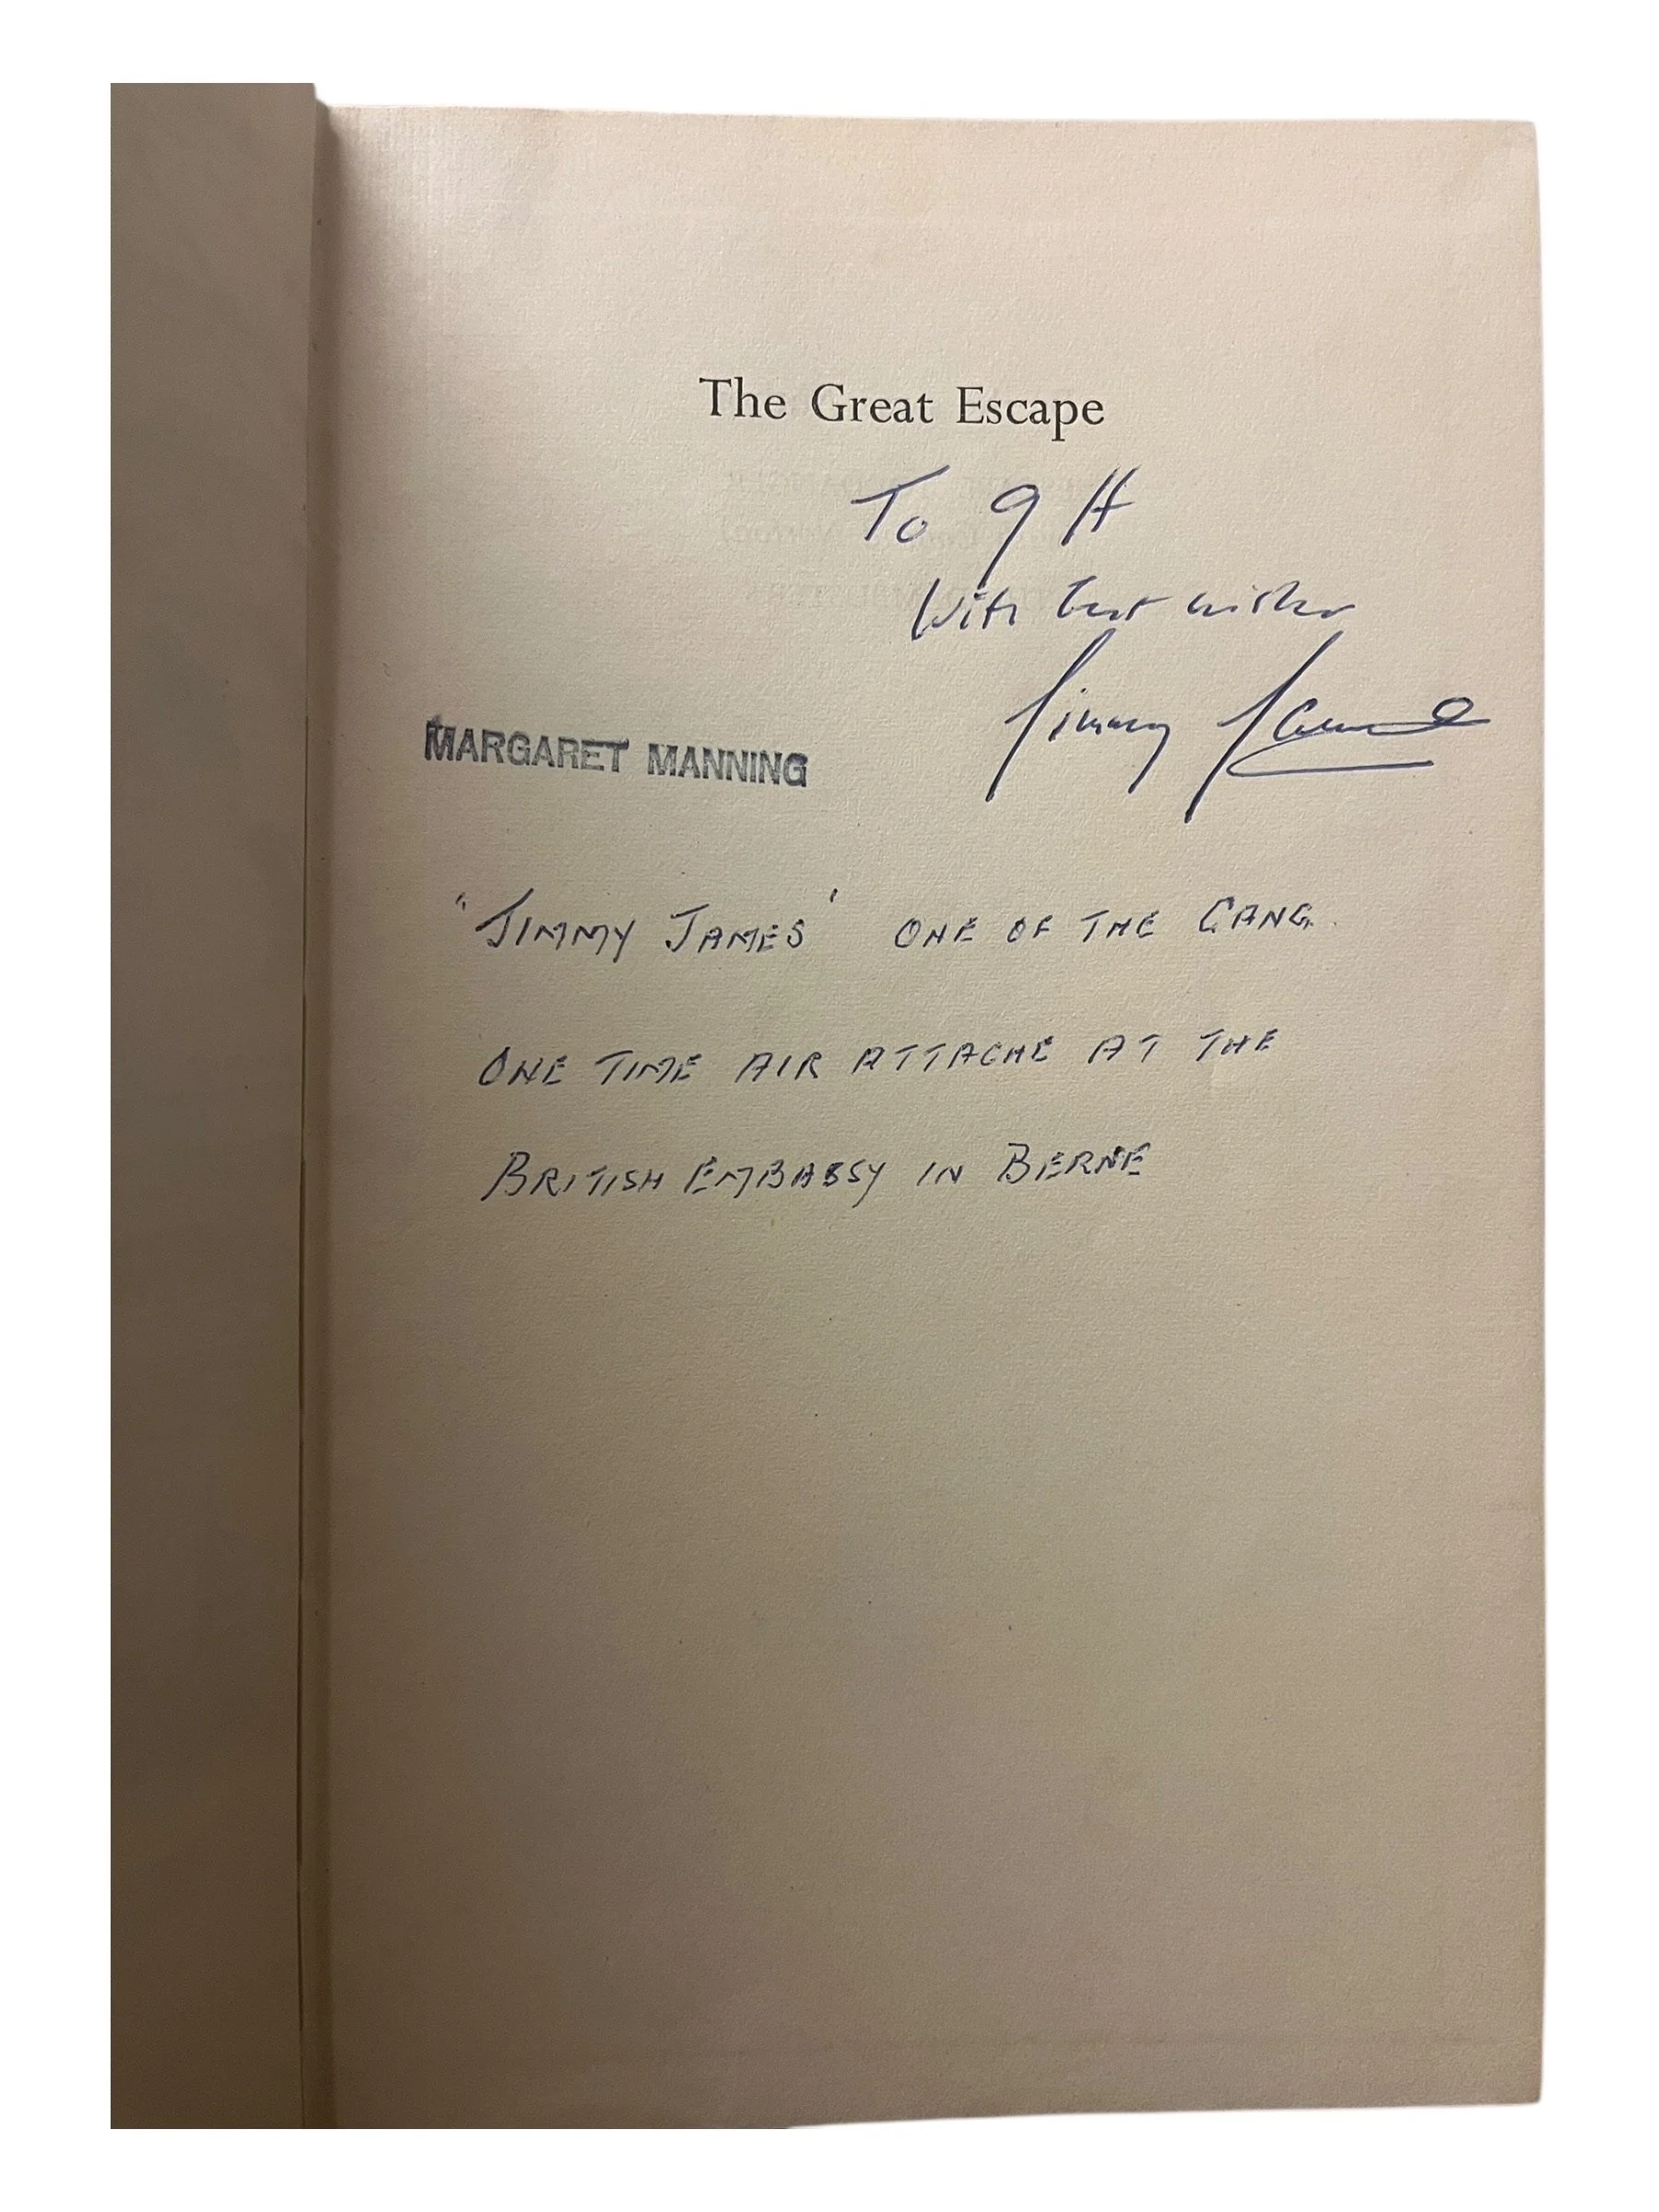 The Great Escape
To 9 H
With best wishes
Jimmy James
MARGARET MANNING
"JIMMY JAMES' ONE OF THE GANG.
ONE TIME AIR ATTACHE AT THE
BRITISH EMBASSY IN BERNE